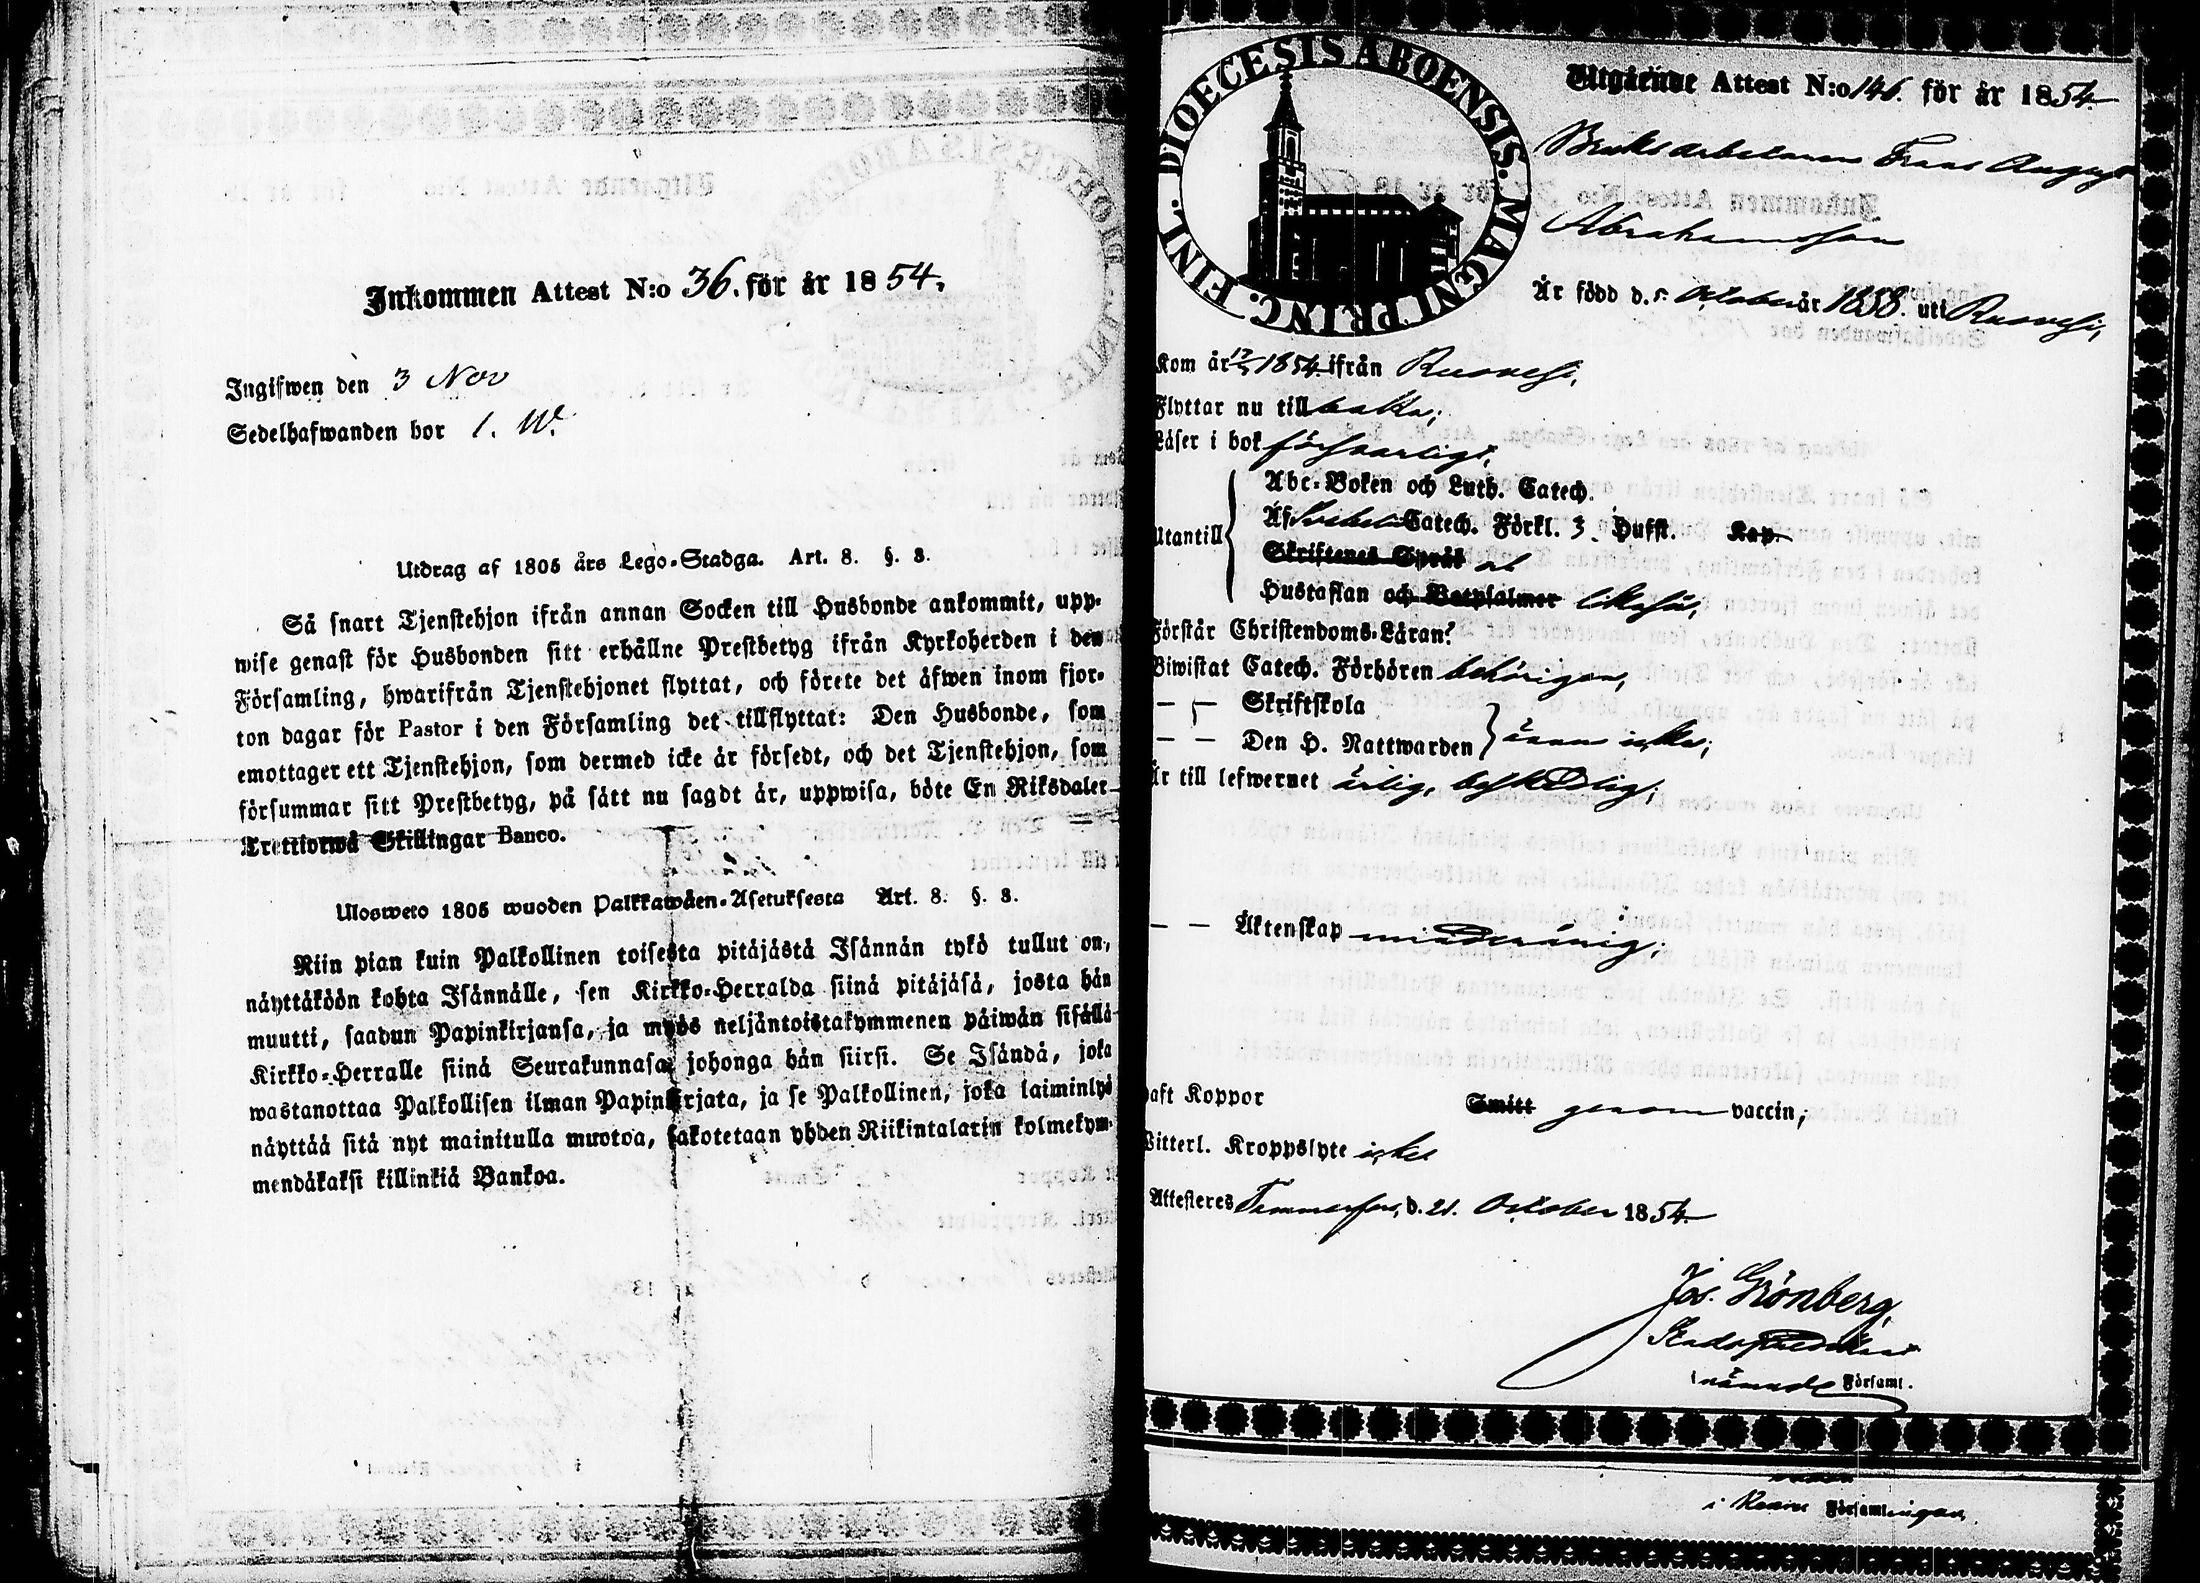 Inkommen Attest N:o 36. för år 1854.
Ingifwen den 3 Nov
Sedelhafwanden bor 1. W.
Utdrag af 1805 års Lego-Stadga. Art. 8. §. 3.
Så snart Tjenstehjon ifrån annan Socken till Husbonde ankommit, upp-
wise genast för Husbonden sitt erhållne Prestbetyg ifrån Kyrkoherden i den
Församling, hwarifrån Tjenstehjonet flyttat, och förete det äfwen inom fjor-
ton dagar för Pastor i den Församling det tillflyttat: Den Husbonde, som
emottager ett Tjenstehjon, som dermed icke är försedt, och det Tjenstehjon, som
försummar sitt Prestbetyg, på sätt nu sagdt är, uppwisa, böte En Riksdaler
Trettiotwå Skillingar Banco.
Ulosweto 1805 wuoden Palkkawäen-Asetuksesta Art. 8. §. 3.
Niin pian kuin Palkollinen toisesta pitäjästä Isännän tykö tullut on,
näyttäköön kohta Isännälle, sen Kirkko-Herralda siinä pitäjäsä, josta hän
muutti, saadun Papinkirjansa, ja myös neljäntoistakymmenen päiwän sisällä
Kirkko-Herralle siinä Seurakunnasa johonga hän siirsi. Se Isändä, joka
wastanottaa Palkollisen ilman Papinkirjata, ja se Palkollinen, joka laiminlyö
näyttää sitä nyt mainitulla muotoa, sakotetaan yhden Riikintalarin kolmekym-
mendäkaksi killinkiä Bankoa.
DIOECESIS ABOENSIS. MAGNI PRINC. FINL.
Utgående Attest N:o 146. för år 1854
Bruksarbetaren Frans August
Abrahamsson
Är född d. 5. October år 1838. uti Ruovesi,
Kom år 1854 ifrån Ruovesi,
Flyttar nu tillbaka;
Läser i bok försvarligt,
Utantill
Abc-Boken och Luth. Catech.
Af Svebelii Catech. Förkl. 3 Hufst. Kap.
Skriftenes Språk
Hustaflan och Botpsalmer likaså;
Förstår Christendoms-Läran?
Biwistat Catech. Förhören behörigen,
— — Skriftskola
— — Den H. Nattwarden ännu icke;
Är till lefwernet ärlig, beskedlig;
— — Äktenskap minderårig;
Haft Koppor Smitt genom vaccin;
Witterl. Kroppslyte icke
Attesteres Tammerfors, d. 21. October 1854
Jos. Grönberg
Stadspredikant
i nämnde Församl.
i Församlingen,